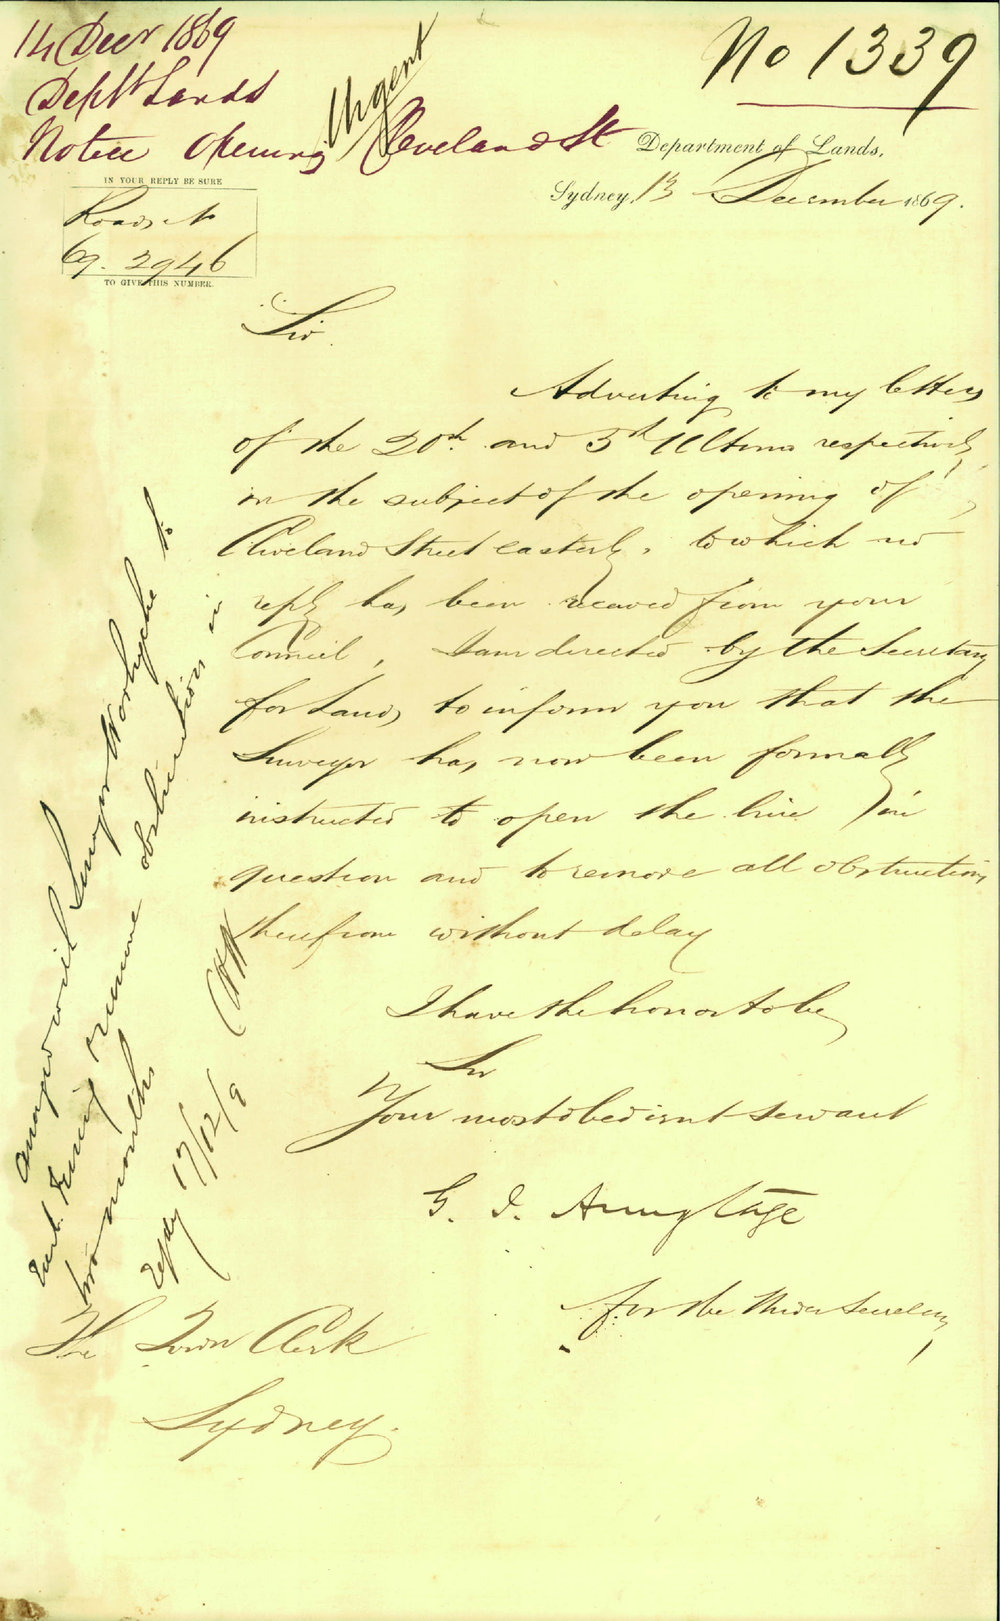 14 Decr 1869
Dept Lands
Notice Opening Cleveland St
Urgent
No 1339
Department of Lands,
Sydney, 13 December 1869.
IN YOUR REPLY BE SURE
Roads
69. 2946
TO GIVE THIS NUMBER.
Sir
Adverting to my letters
of the 20th. and 5th Ultimo respectively
on the subject of the opening of
Cleveland Street easterly, to which no
reply has been received from your
Council, I am directed by the Secretary
for Lands to inform you that the
Surveyor has now been formally
instructed to open the line in
question and to remove all obstructions
therefrom without delay
I have the honor to be
Sir
Your most obedient servant
G. I. Armytage
for the Under Secretary
The Town Clerk
Sydney.
arranged with Surveyor Worlyche to
fencing or remove obstructions in
two months
17/12/9